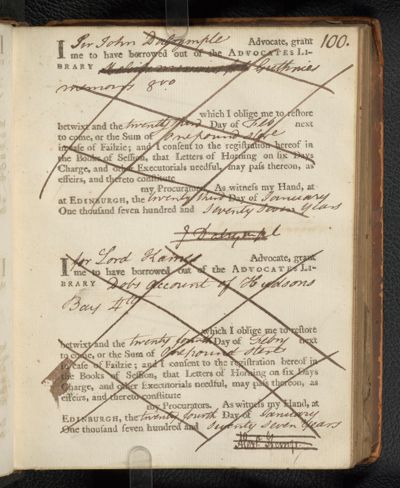 100.
I Sir John Dalrymple Advocate, grant
me to have borrowed out of the ADVOCATES LI-
BRARY Guthries
memoirs 8vo
which I oblige me to restore
betwixt and the twenty third Day of Feby next
to come, or the Sum of One pound Ster
in case of Failzie; and I consent to the registration hereof in
the Books of Session, that Letters of Horning on six Days
Charge, and other Executorials needful, may pass thereon, as
effeirs, and thereto constitute
my Procurators. As witness my Hand, at
at EDINBURGH, the twenty third Day of January
One thousand seven hundred and Seventy Seven Years
J Dalrympl
I for Lord Kames Advocate, grant
me to have borrowed out of the ADVOCATES LI-
BRARY Dobs account of Hudsons
Bay 4to
which I oblige me to restore
betwixt and the twenty fourth Day of Febry next
to come, or the Sum of One pound Sterl
in case of Failzie; and I consent to the registration hereof in
the Books of Session, that Letters of Horning on six Days
Charge, and other Executorials needful, may pass thereon, as
effeirs, and thereto constitute
my Procurators. As witness my Hand, at
EDINBURGH, the twenty fourth Day of January
One thousand seven hundred and Seventy Seven Years